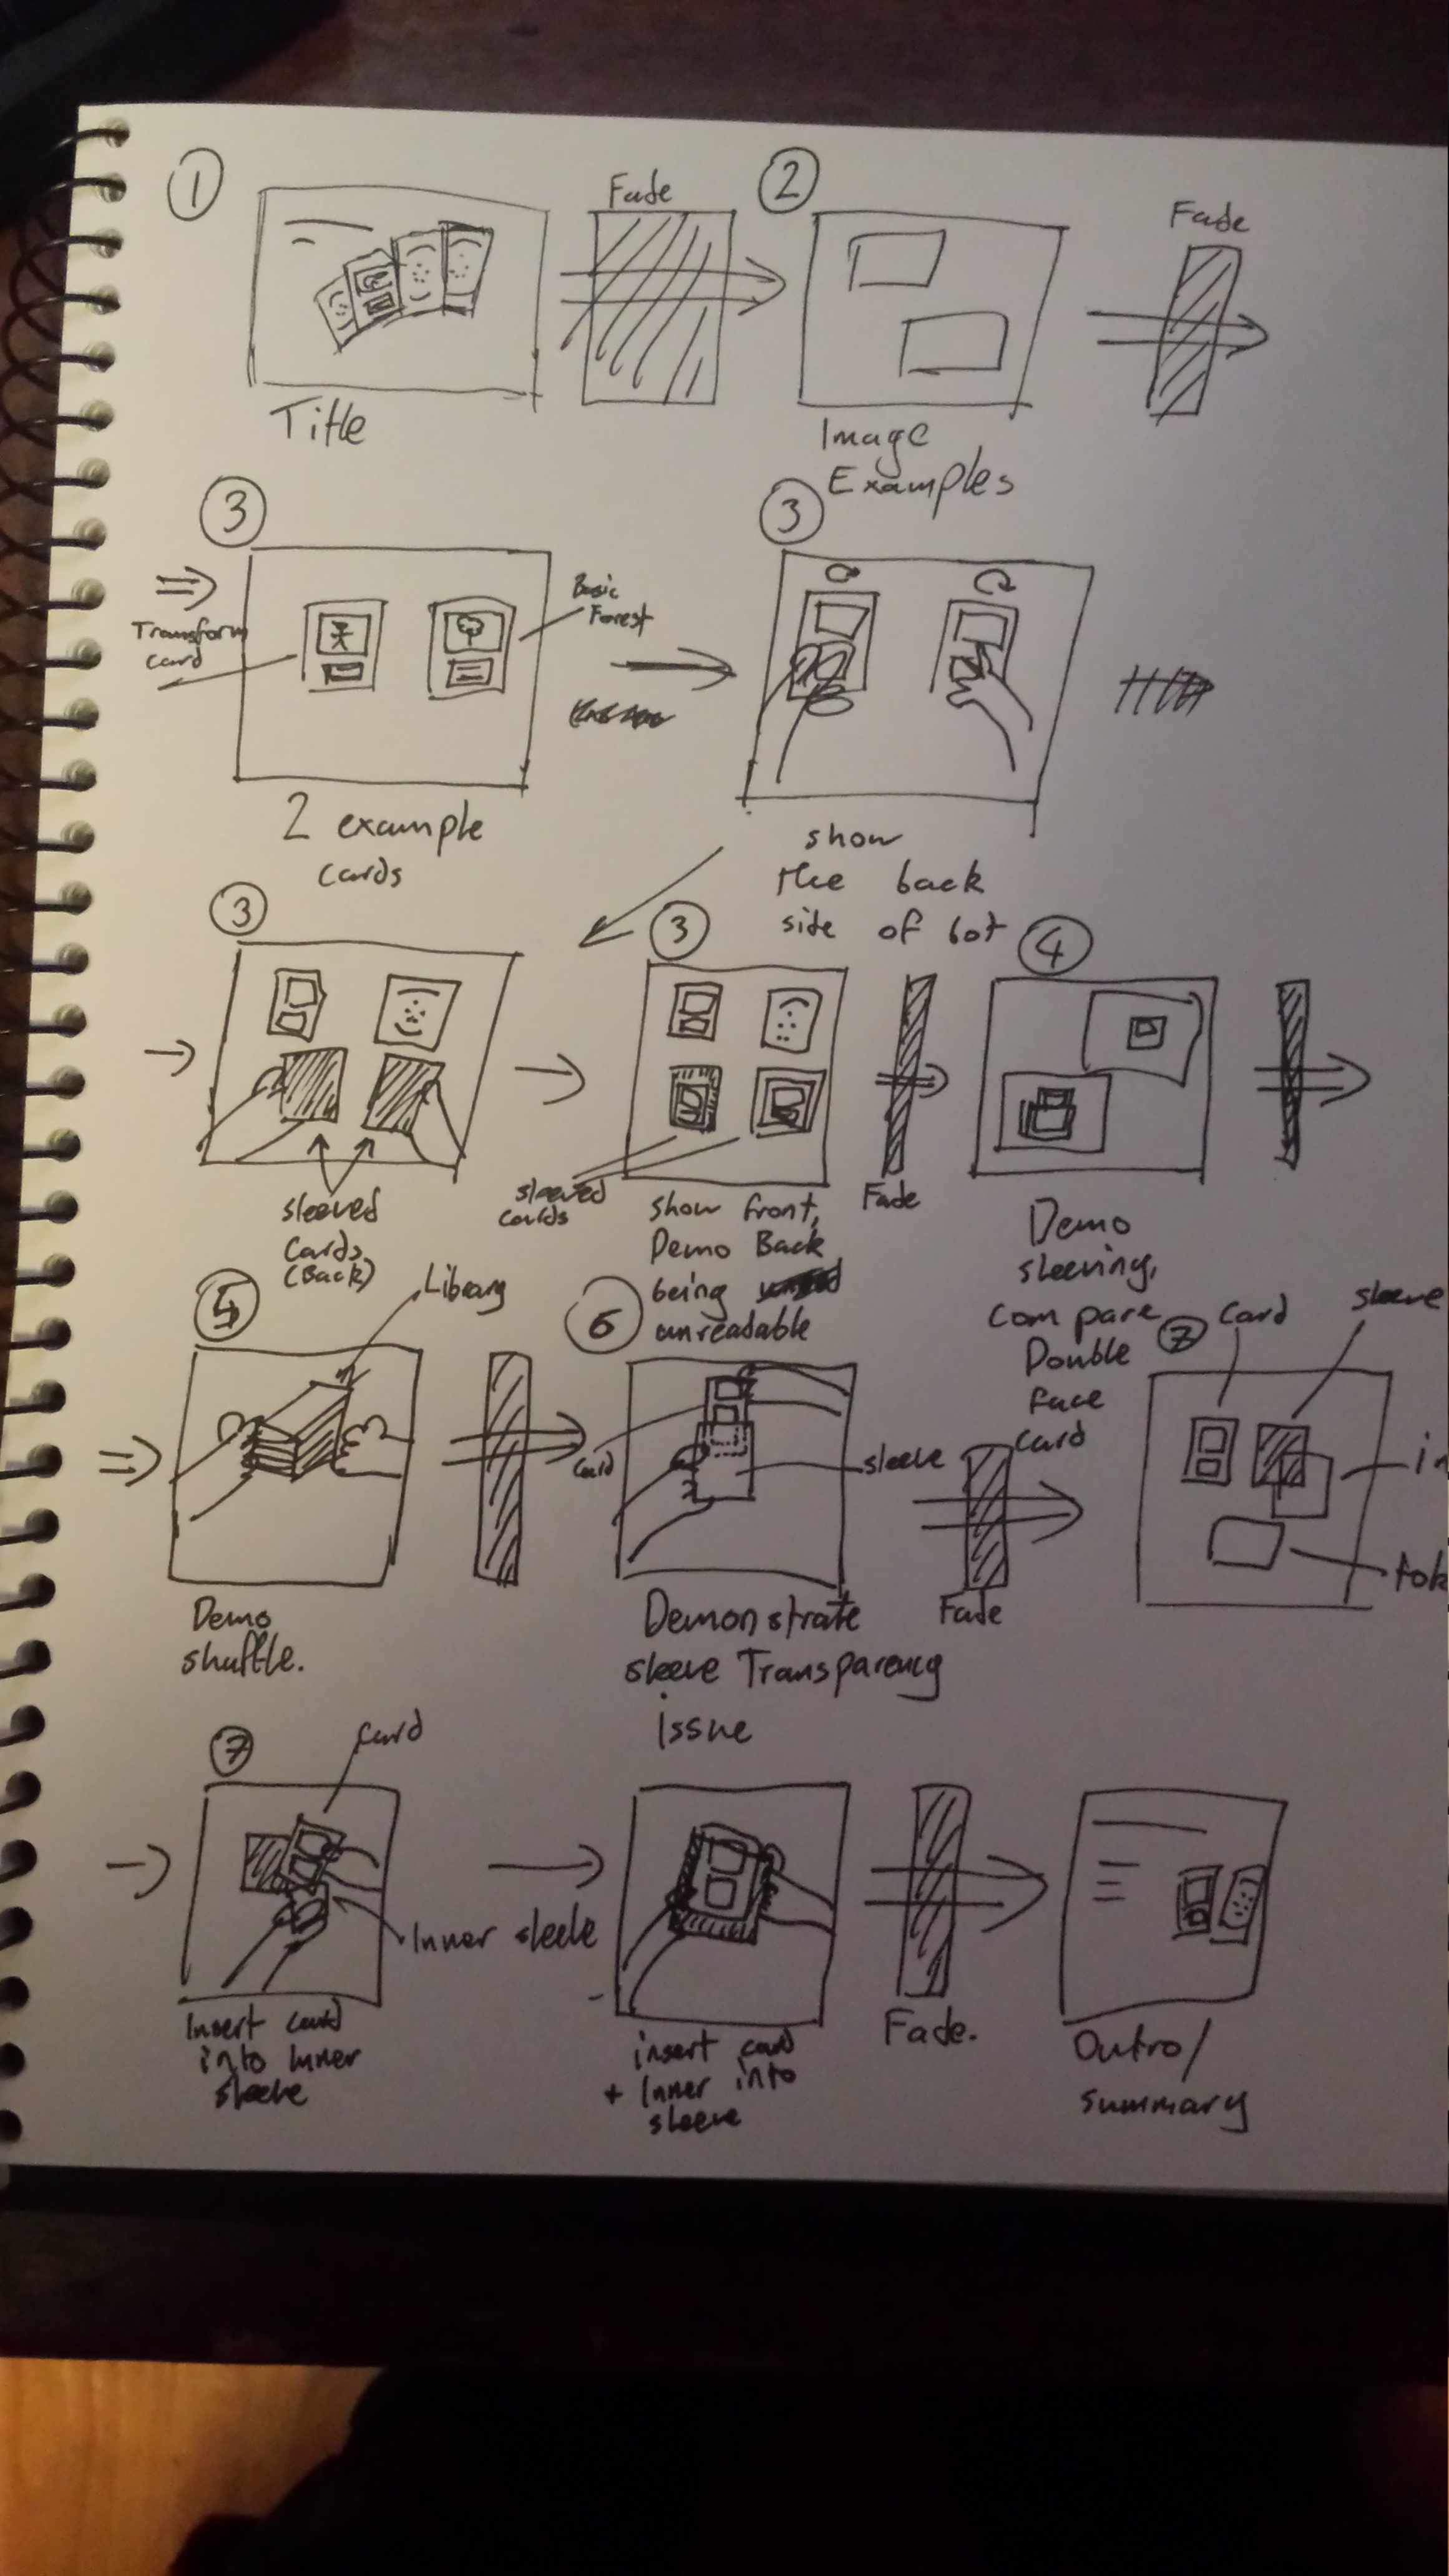 1
Fade
2
Fade
Title
Image
Examples
3
3
Transform
card
Basic
Forest
2 example
cards
show
the back
side of bot
3
3
4
sleeved
cards
(Back)
sleeved
cards
show front,
Demo Back
being
unreadable
Fade
Demo
sleeving,
compare
Double
face
card
5
Library
6
7
card
sleeve
card
sleeve
in
tok
Demo
shuffle.
Demonstrate
sleeve Transparency
issue
Fade
7
card
Inner sleeve
Insert card
into Inner
sleeve
insert card
+ Inner into
sleeve
Fade.
Outro/
summary